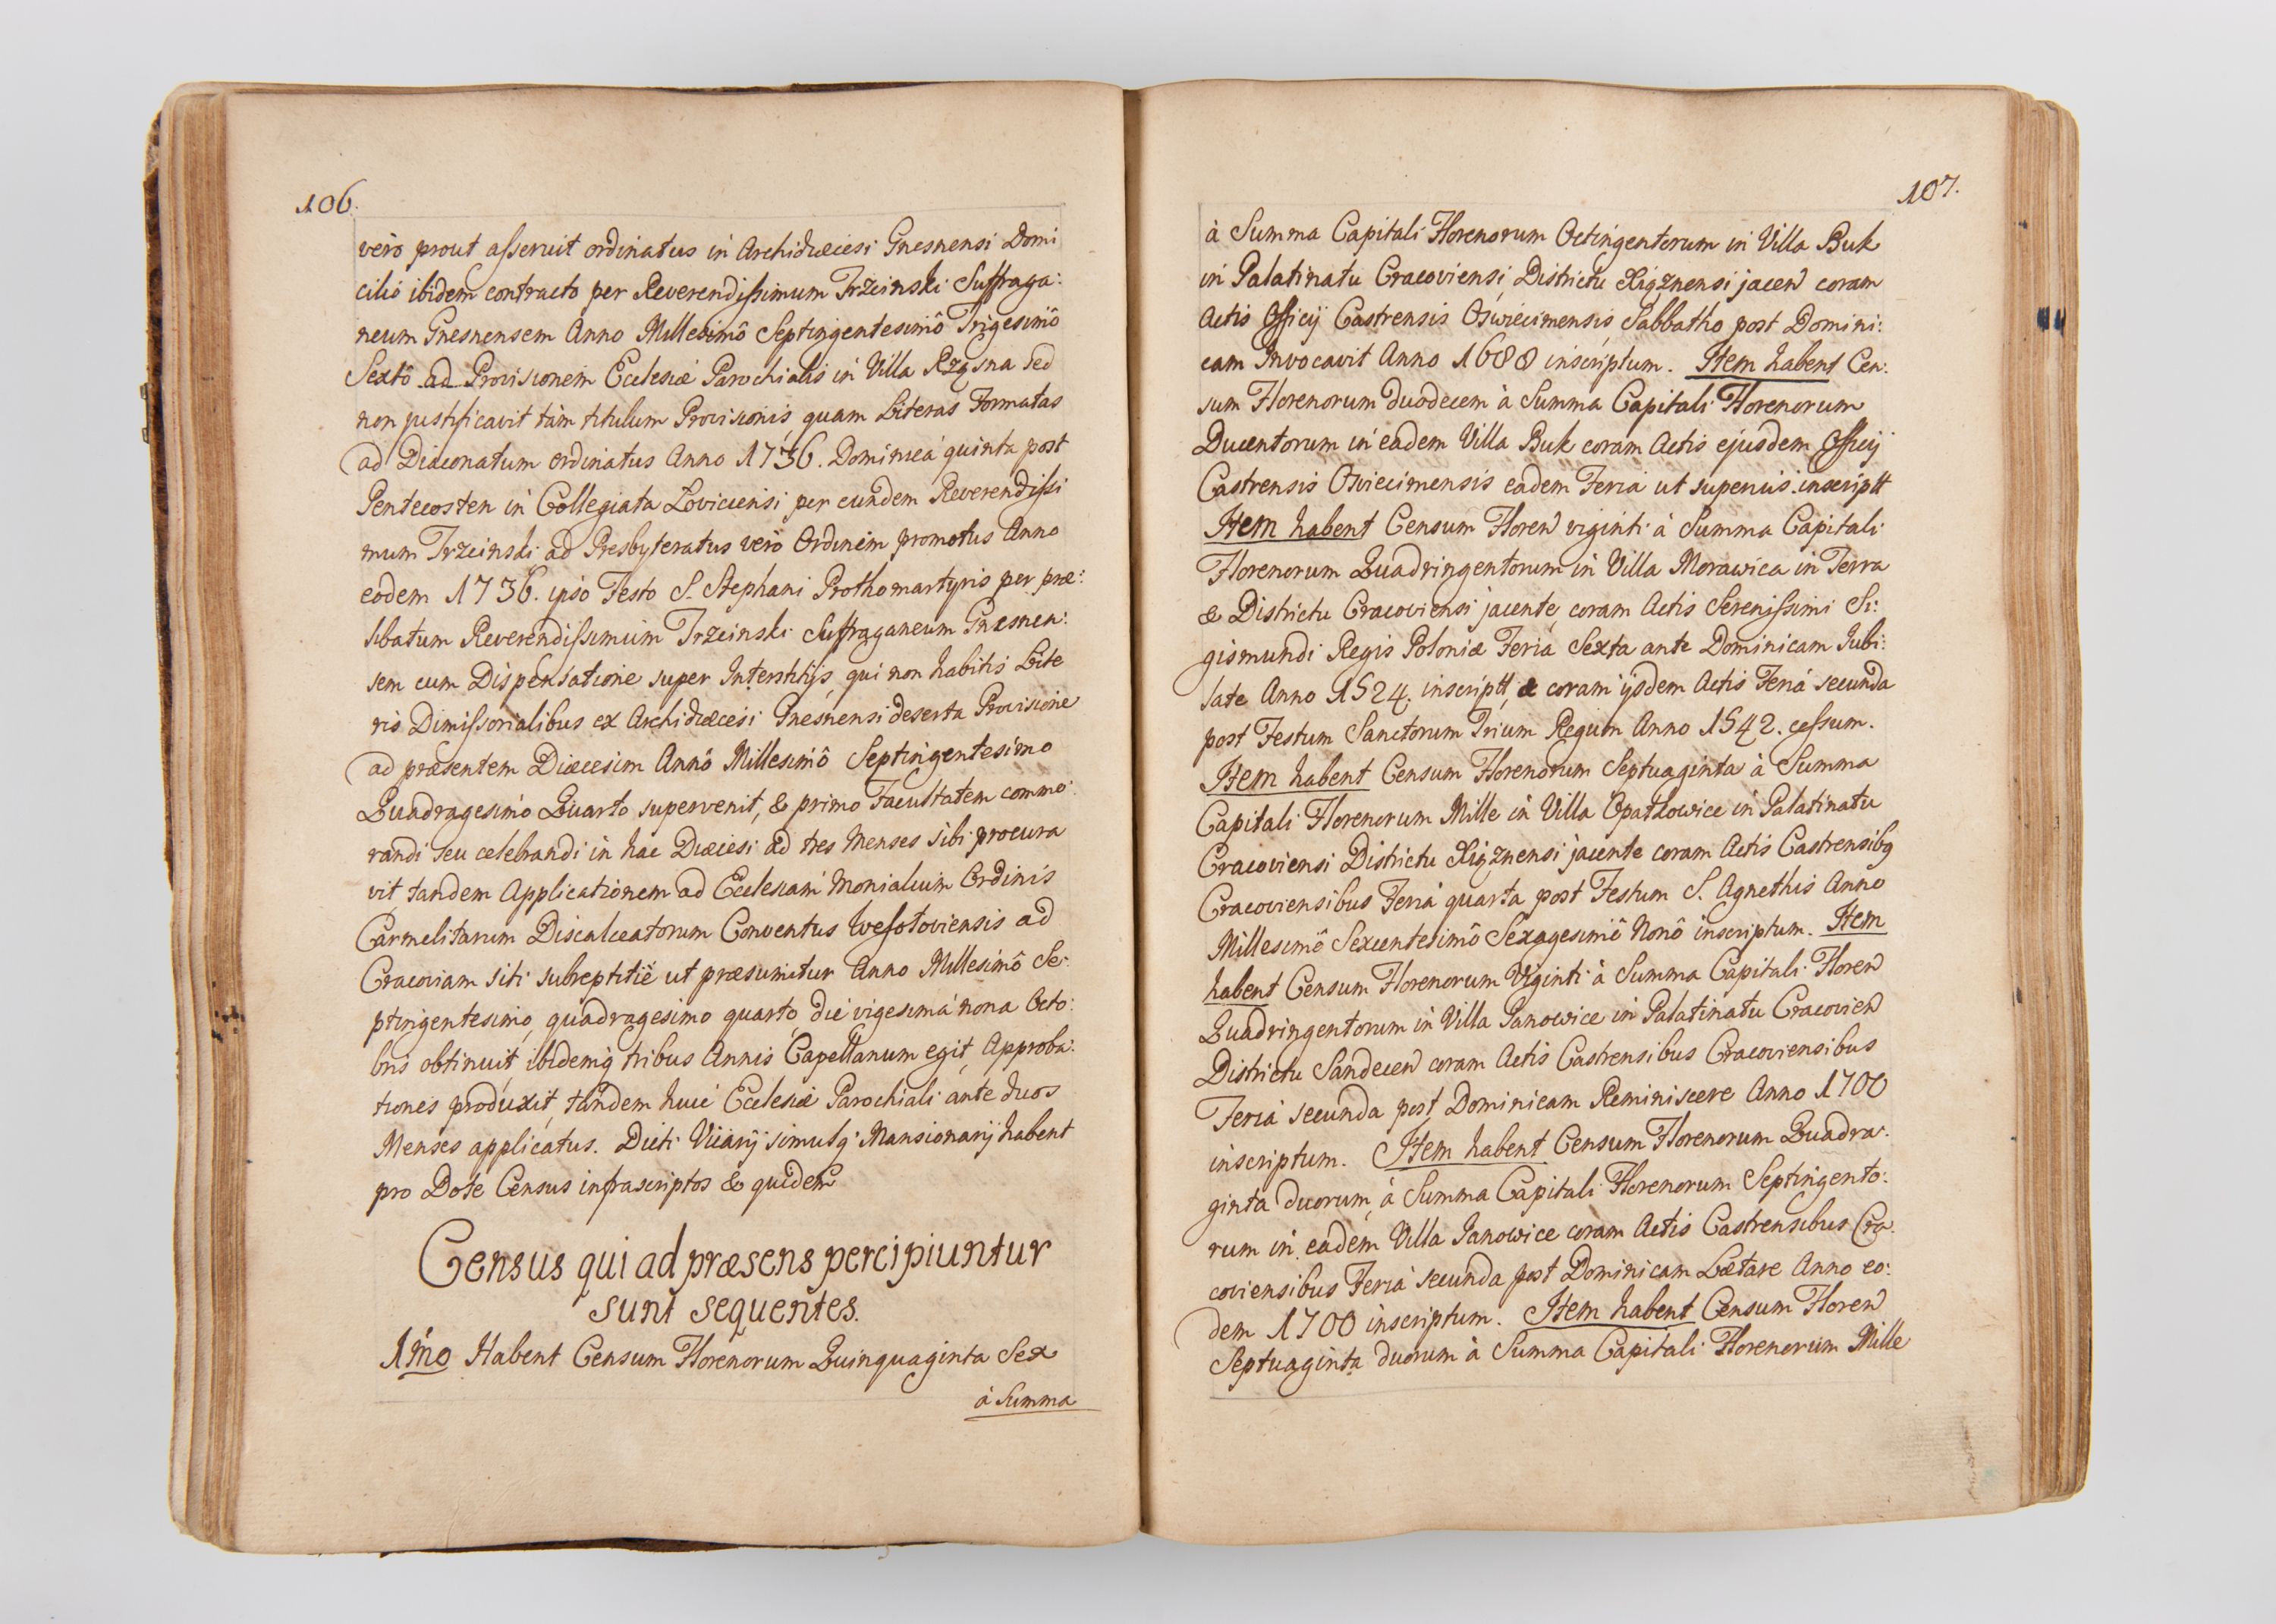 106.
verò prout asseruit ordinatus in Archidiæcesi Gnesnensi Domi
cilio ibidem contracto per Reverendissimum Trzcinski Suffraga:
neum Gnesnensem Anno Millesimô Septingentesimô Trigesimô
Sextô ad Provisionem Ecclesiæ Parochialis in Villa sed
non justificavit tàm titulum Provisionis, quam Literas Formatas
ad Diaconatum ordinatus Anno 1736. Dominicá quinta post
Pentecosten in Collegiata Loviciensi per eundem Reverendissi
mum Trzcinski ad Presbyteratus verò Ordinem promotus Anno
eodem 1736. ipso Festo S. Stephani Prothomartyris per præ:
libatum Reverendissimum Trzcinski Suffraganeum Gnesnen:
sem cum Dispensatione super Interstitijs, qui non habitis Lite
ris Dimissorialibus ex Archidiæcesi Gnesnensi deserta Provisione
ad præsentem Diæcesim Annô Millesimô Septingentesimo
Quadragesimo Quarto supervenit, & primo Facultatem commo:
randi seu celebrandi in hac Diæcesi ad tres Menses sibi procura
vit, tandem Applicationem ad Ecclesiam Monialium Ordinis
Carmelitarum Discalceatorum Conventus Wesoloviensis ad
Cracoviam siti subreptitiè ut præsumitur Anno Millesimô Se:
ptingentesimo, quadragesimo quarto, die vigesimá nona Octo:
bris obtinuit, ibidemq tribus Annis Capellanum egit, Approba:
tiones produxit, tandem huic Ecclesiæ Parochiali ante duos
Menses applicatus. Dicti Vicarij simulq Mansionarij habent
pro Dote Census infrascriptos & quidem
Census qui ad præsens percipiuntur
sunt sequentes.
1mo Habent Censum Florenorum Quinquaginta Sex
à Summa
107.
à Summa Capitali Florenorum Octingentorum in Villa Buk
in Palatinatu Cracoviensi, Districtu Xiąznensi jacen coram
Actis Officij Castrensis Oswiecimensis, Sabbatho post Domini:
cam Invocavit Anno 1688 inscriptum. Item habent Cen:
sum Florenorum duodecem à Summa Capitali Florenorum
Ducentorum in eadem Villa Buk coram Actis ejusdem Officij
Castrensis Oswiecimensis eadem Feria ut superius inscriptt
Item habent Censum Floren viginti à Summa Capitali
Florenorum Quadringentorum in Villa Morawica in Terra
& Districtu Cracoviensi jacente, coram Actis Serenissimi Si:
gismundi Regis Poloniæ Feriá Sexta ante Dominicam Jubi:
late Anno 1524. inscriptt, & coram ijsdem Actis Feriá secunda
post Festum Sanctorum Trium Regum Anno 1542. cessum.
Item habent Censum Florenorum Septuaginta à Summa
Capitali Florenorum Mille in Villa Opatkowice in Palatinatu
Cracoviensi Districtu Xiąznensi jacente coram Actis Castrensibq
Cracoviensibus Feriá quarta post Festum S. Agnethis Anno
Millesimô Sexcentesimô Sexagesimô Nonô inscriptum. Item
habent Censum Florenorum Viginti à Summa Capitali Floren
Quadringentorum in Villa Janowice in Palatinatu Cracovien
Districtu Sandecen coram Actis Castrensibus Cracoviensibus
Feriá secunda post Dominicam Reminiscere Anno 1700
inscriptum. Item habent Censum Florenorum Quadra:
ginta duorum, à Summa Capitali Florenorum Septingento:
rum in eadem Villa Janowice coram Actis Castrensibus Cra
coviensibus Feriá secunda post Dominicam Lætare Anno eo:
dem 1700 inscriptum. Item habent Censum Floren
Septuaginta duorum à Summa Capitali Florenorum Mille